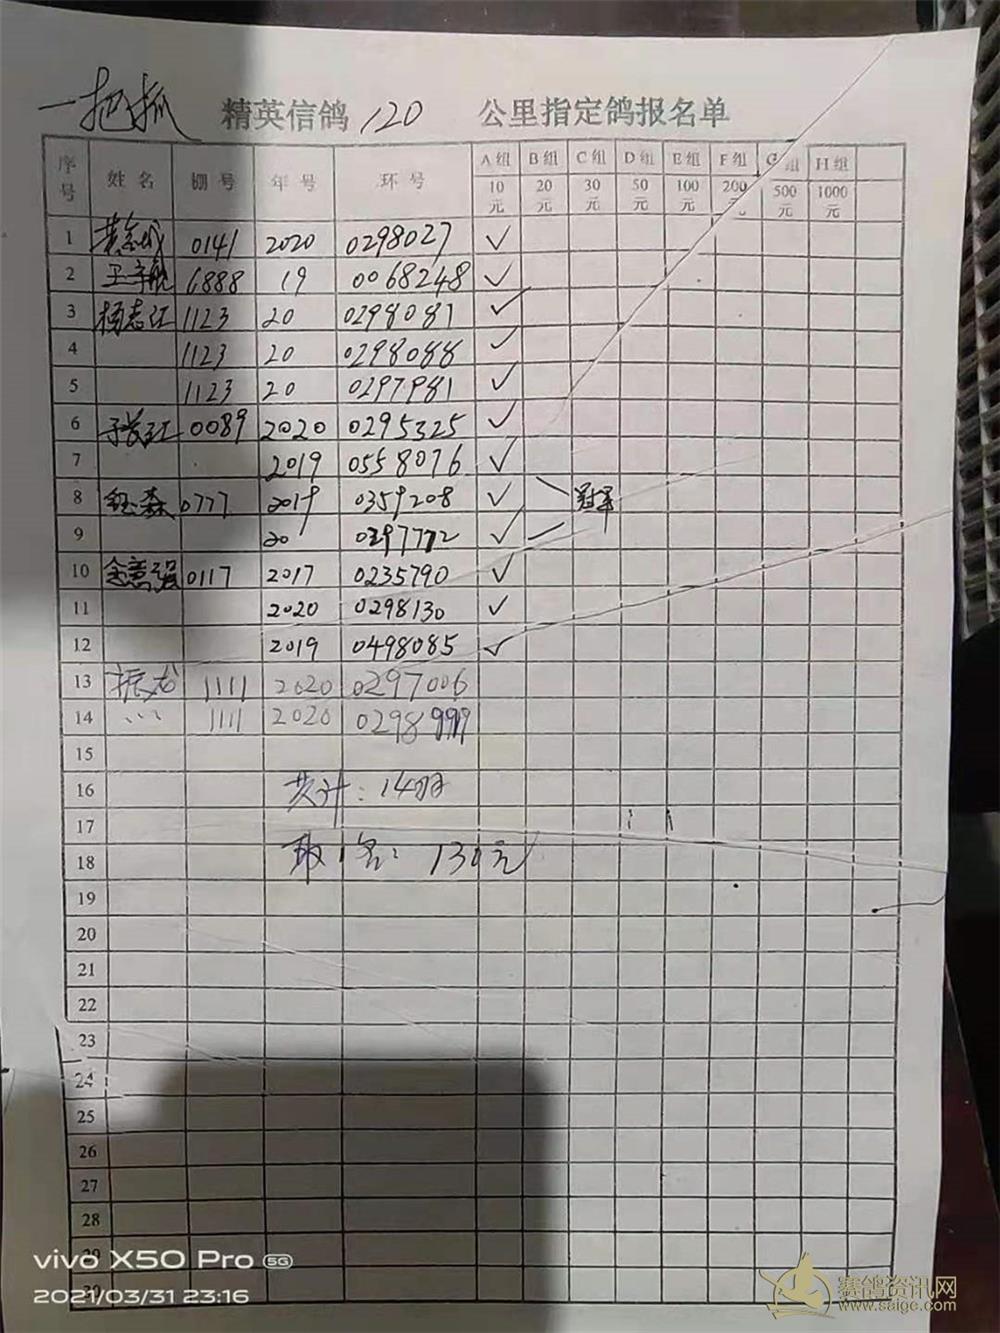 一把抓 精英信鸽 120 公里指定鸽报名单
序号 姓名 棚号 年号 环号 A组 B组 C组 D组 E组 F组 G组 H组
10元 20元 30元 50元 100元 200元 500元 1000元
1 0141 2020 0298027 ✓
2 王宇航 6888 19 0068248 ✓
3 杨志江 1123 20 0298081 ✓
4 1123 20 0298088 ✓
5 1123 20 0297981 ✓
6 0089 2020 0295325 ✓
7 2019 0558076 ✓
8 钰森 0777 2019 0359208 ✓ 冠军
9 20 0297772 ✓
10 金意强 0117 2017 0235790 ✓
11 2020 0298130 ✓
12 2019 0498085 ✓
13 振龙 1111 2020 0297006
14 、、、 1111 2020 0298999
15
16 共计：14羽
17
18 取1名：130元
19
20
21
22
23
24
25
26
27
28
29
30
vivo X50 Pro 5G
2021/03/31 23:16
赛鸽资讯网
www.saige.com